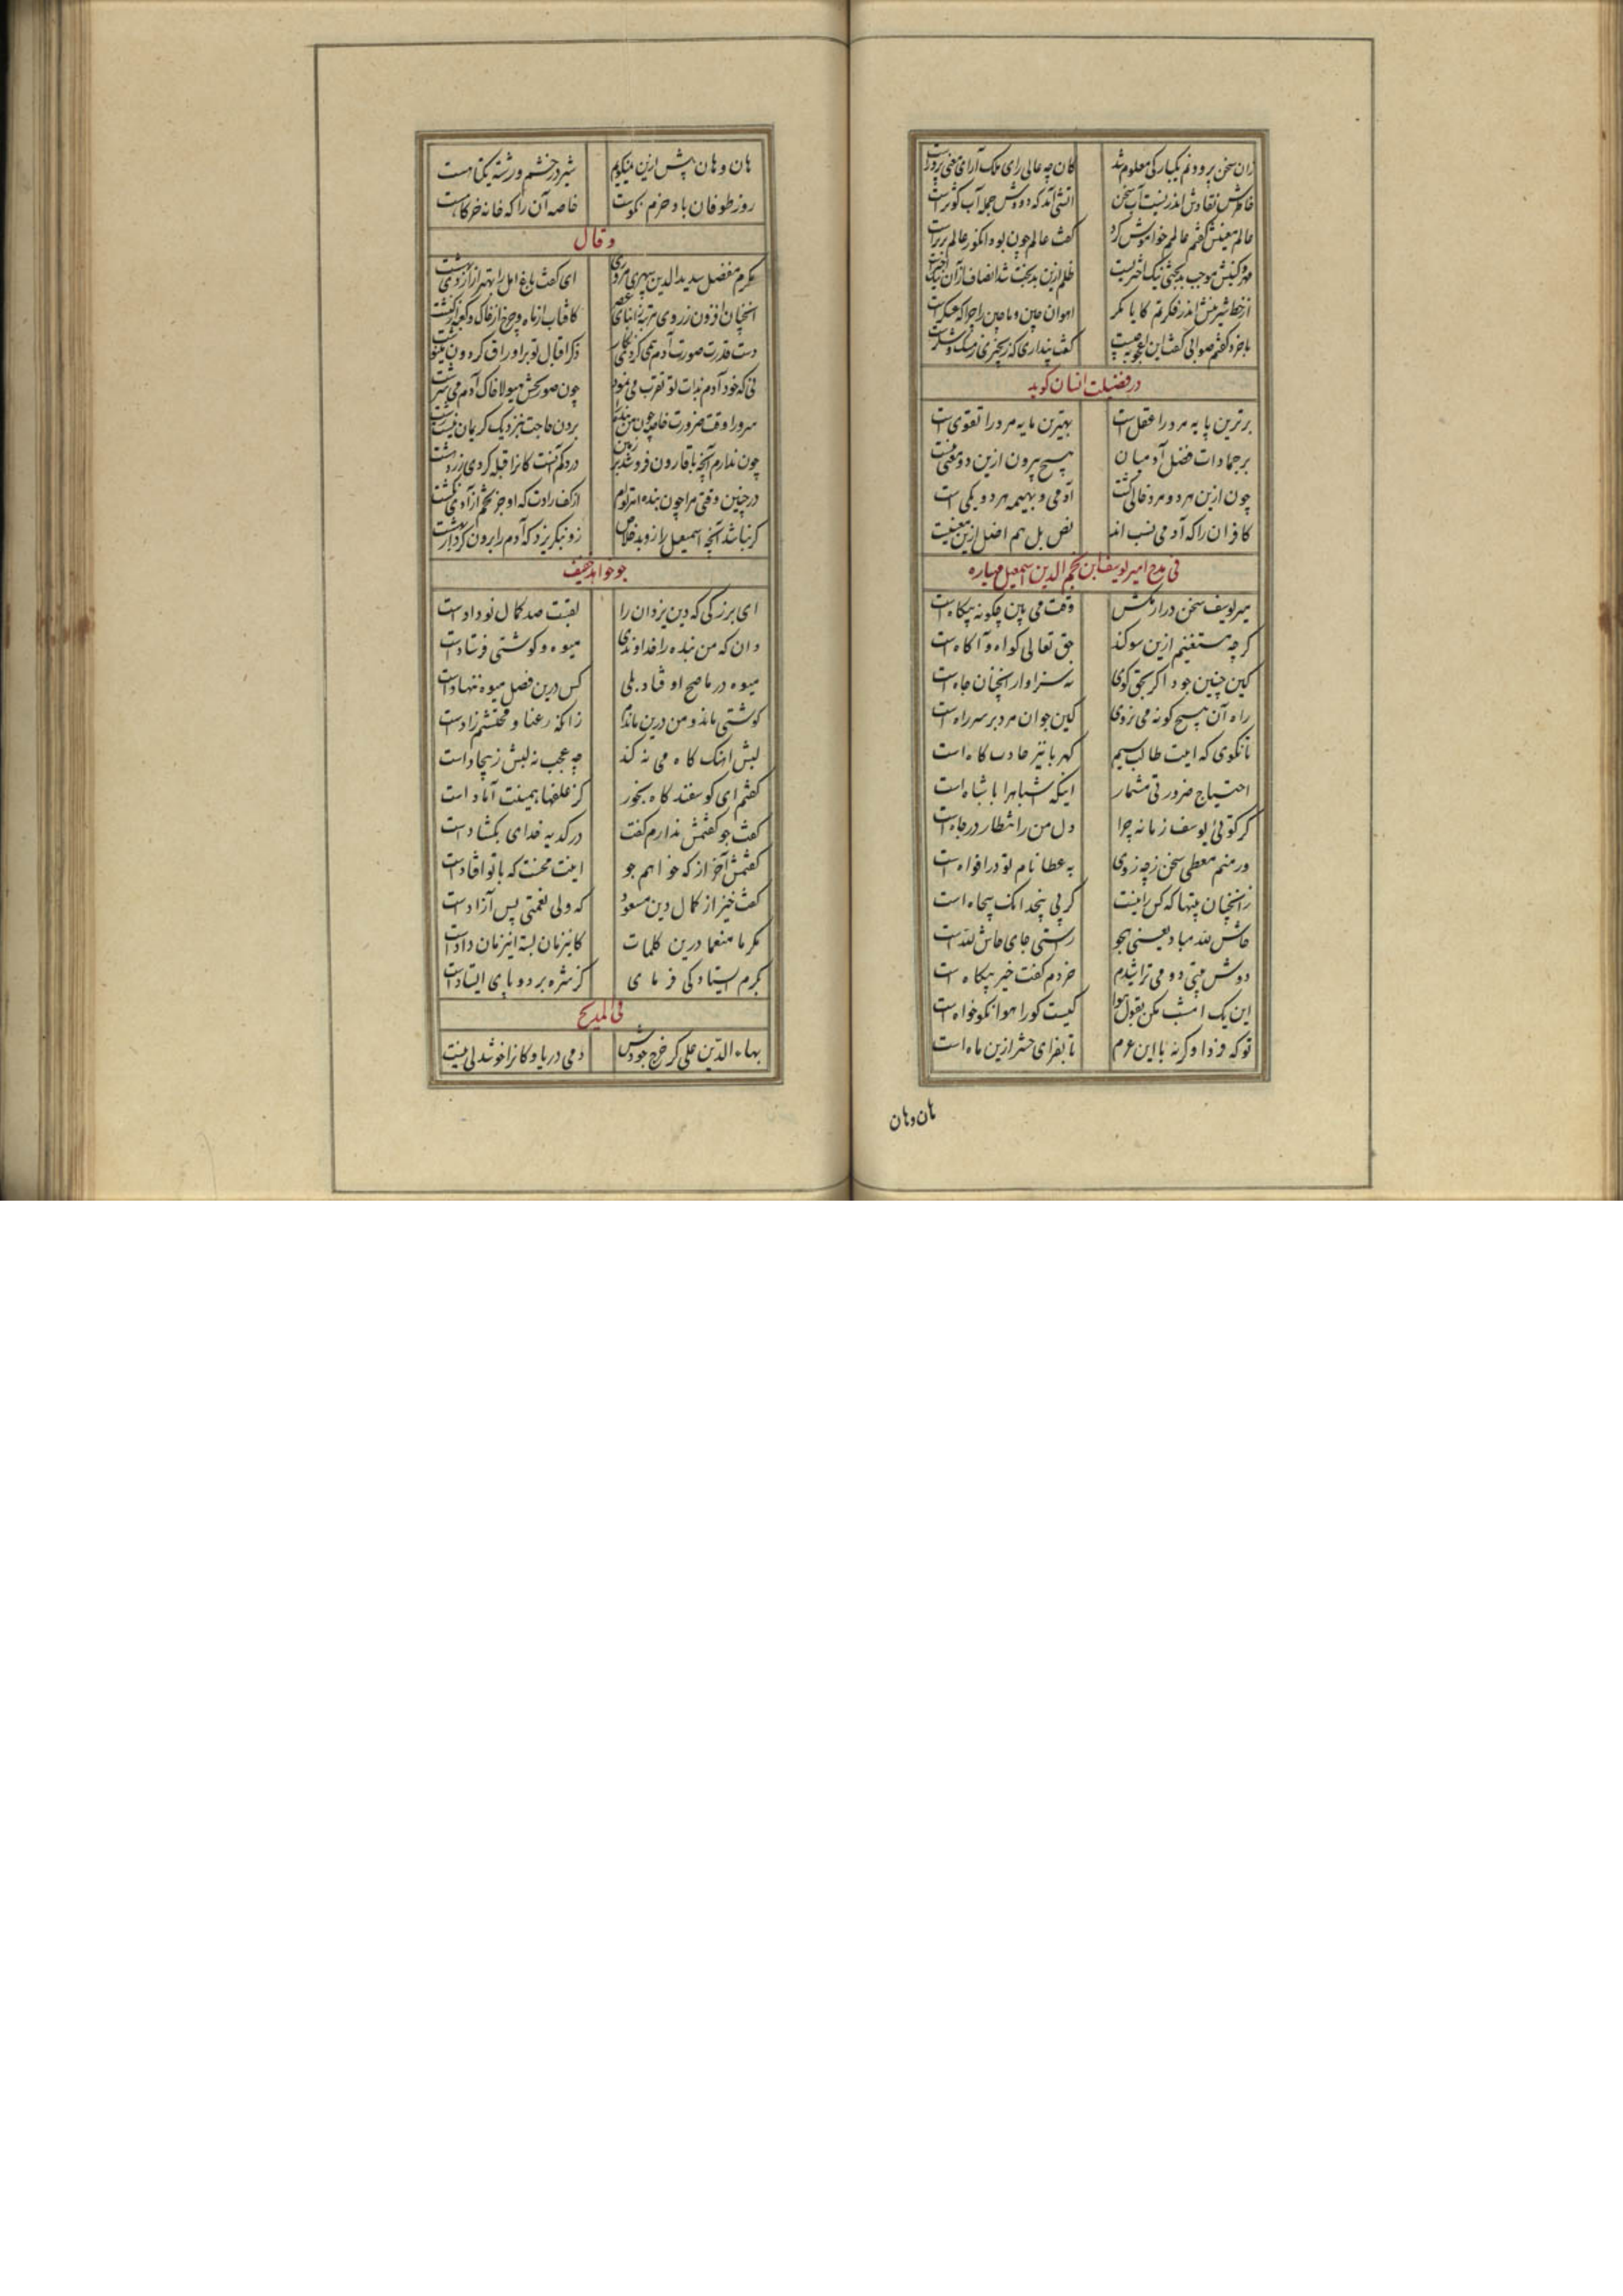 زان سخن پرورد نم یکبارگی معلوم شد کان چه عالی رای ملک آرای معنی پرورست
خاطرش نقادش اندر نیست آب سخن آتشی آمد که دودش جمله آب کوثرست
عالم معینیش گفتم عالم خواموش کرد گفت عالم چون بود انکو ز عالم برترست
مهر و کینش موجب بدبختی نیک اختریست ظلم ازین بدبخت شد انصاف از آن نیک اخترست
از خط شیرینش اندر فکرتم کایا مگر اهوان چین و ماچین را چرا که عسکرست
با خرد گفتم صوابی گفت این اعجوبه چیست گفت پنداری که ریختری ز مسک و شکرست
در فضیلت انسان کوید
برترین پایه مرد را عقل است بهترین مایه مرد را تقوی است
بر جمادات فضل آدمیان هیچ بیرون ازین دو معنی نیست
چون ازین هر دو مرد خالی گشت آدمی و بهیمه هر دو یکی است
کافران را که آدمی نسب اند نص بل هم اضل ازین معنیست
فی مدح امیر یوسف ابن نجم الدین اسمعیل مهیاره
میر یوسف سخن دراز مکش وقت می بین چگونه بیکاه است
گرچه مستغنیم ازین سوگند حق تعالی گواه و آگاه است
کین چنین جود اگر بحق گوی نه سزاوار انچنان جاه است
راه آن هیچ کونه می نروی کین جوان مرد بر سر راه است
تا نکوی که اینت طالب سیم کهربا نیز جاذب کاه است
احتیاج ضرورتی مشمار اینکه اشباه را باشباه است
گر توئی یوسف زمانه چرا دل من ز انتظار در چاه است
ور منم معطی سخن ز چه روی به عطا نام تو در افواه است
ز انچنان بیتها که کس را نیست گر پی پنجدانک پنجاه است
حاش لله مباد یعنی هجو راستی جای حاش لله است
دوش بیتی دو می تراشیدم خردم گفت خیر بیکاه است
این یک امشب مکن بقول هوا کیست کو را هوا نکو خواه است
تو که فردا و گرنه با این عزم تا بفزای حشر ازین ماه است
هان وهان
هان و هان پیش ازین نمیگویم شیر در خشم و رشته یکتا هست
روز طوفان باد حزم نکوست خاصه آن را که خانه خرگاهست
و قال
مکرم مفضل سدید الدین بیهقی ای کفت باغ امل را بهتر از اردیبهشت
انچنان افزون ز روی مرتبه ز ابنای عصر کافتاب از ماه و چرخ از خاک و کعبه از کنشت
دست قدرت صورت آدم همی کردی نگار ذکر اقبال تو بر اوراق گردون می نوشت
نی که خود آدم بذات تو تقرب می نمود چون صور بخش هیولا خاک آدم می سرشت
سرورا وقت ضرورت خاصه چون من بنده را بردن حاجت بنزدیک کریمان نیست زشت
چون ندارم آنچه با قارون فرو شد بر زمین در دکم آنست کانرا قبله کردی زردهشت
در چنین وقتی مرا چون بنده انرا توام از کف رادت که او جز تخم آزادی نکشت
گر نباشد آنچه اسمعیل را زو بد خلاص زو نبگریزد که آدم را برون کرد از بهشت
جو خواهد حیف
ای بزرگی که دین یزدان را لقبت صد کمال نو دادست
دان که من بنده را خداوندی میوه و گوشتی فرستادست
میوه در ما صح او فتاد بلی کس درین فصل میوه ننهادست
گوشتی ماند و من درین ماندم زانکه رعنا و محتشم زادست
لبش اهنک کاه می نه کند چه عجب نه لبش ز بیجادست
گفتم ای کوسفند کاه بخور کز علفها همینت آماد است
گفت جو گفتمش ندارم گفت در کدیه خدای بگشادست
گفتمش آخر از که خواهم جو اینت محنت که با تو افتادست
گفت خیز از کمال دین مسعود که ولی نعمتی بس آزادست
مکرما منعما درین کلمات کابن زمان بسته انیزمان دادست
بکرم ایستادگی فرمای کز شره بر دو پای ایستادست
فی المدیح
بهاء الدین علی کر خرج جودش دمی دریا و کانرا خوشدلی نیست